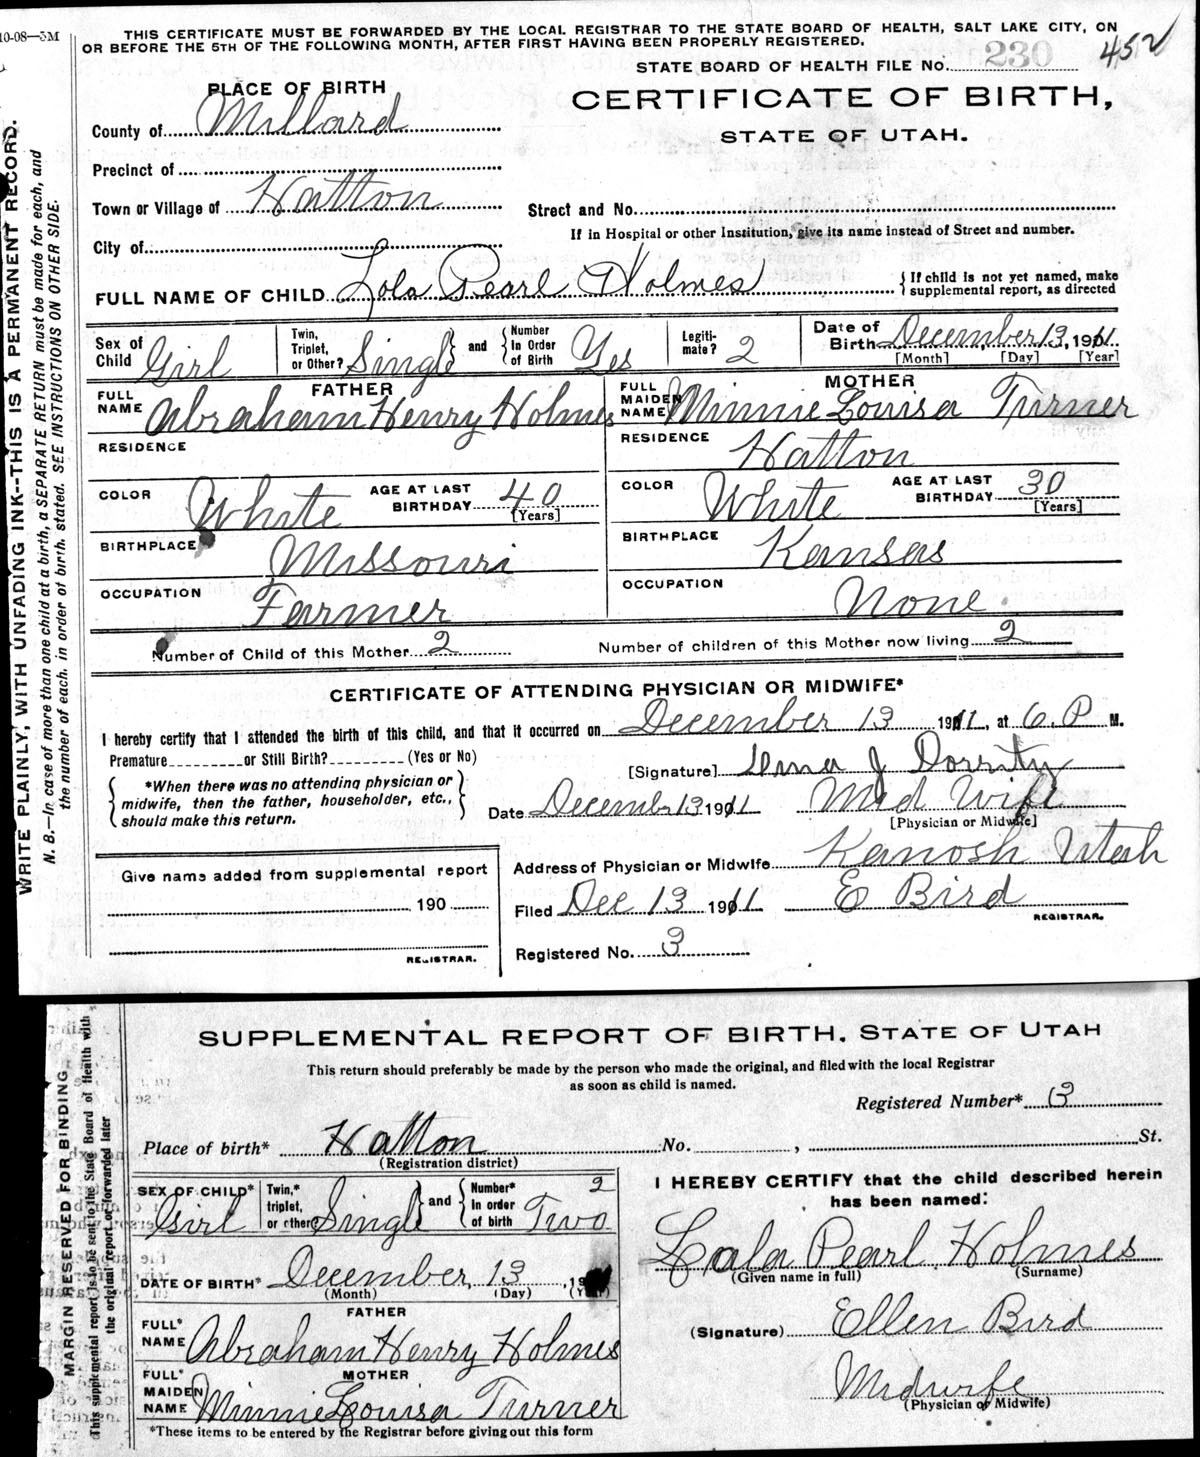 10-08—5M
THIS CERTIFICATE MUST BE FORWARDED BY THE LOCAL REGISTRAR TO THE STATE BOARD OF HEALTH, SALT LAKE CITY, ON
OR BEFORE THE 5TH OF THE FOLLOWING MONTH, AFTER FIRST HAVING BEEN PROPERLY REGISTERED.
STATE BOARD OF HEALTH FILE No. 230
452
PLACE OF BIRTH
CERTIFICATE OF BIRTH,
STATE OF UTAH.
County of Millard
Precinct of
Town or Village of Hatton
Street and No.
If in Hospital or other Institution, give its name instead of Street and number.
City of
FULL NAME OF CHILD Lola Pearl Holmes
If child is not yet named, make
supplemental report, as directed
Sex of Child Girl
Twin, Triplet, or Other? Single and Number In Order of Birth Yes
Legiti-mate? 2
Date of Birth December 13, 1911
[Month] [Day] [Year]
FATHER
FULL NAME Abraham Henry Holmes
MOTHER
FULL MAIDEN NAME Minnie Louisa Turner
RESIDENCE
RESIDENCE Hatton
COLOR White AGE AT LAST BIRTHDAY 40 [Years]
COLOR White AGE AT LAST BIRTHDAY 30 [Years]
BIRTHPLACE Missouri
BIRTHPLACE Kansas
OCCUPATION Farmer
OCCUPATION None
Number of Child of this Mother 2
Number of children of this Mother now living 2
CERTIFICATE OF ATTENDING PHYSICIAN OR MIDWIFE*
I hereby certify that I attended the birth of this child, and that it occurred on December 13 1911, at 6. P M.
Premature or Still Birth? (Yes or No)
*When there was no attending physician or
midwife, then the father, householder, etc.,
should make this return.
[Signature] J Dorrity
Date December 13 1911 Mid Wife
[Physician or Midwife]
Address of Physician or Midwife Kanosh Utah
Filed Dec 13 1911 E Bird
REGISTRAR.
Registered No. 3
Give name added from supplemental report
190
REGISTRAR.
WRITE PLAINLY, WITH UNFADING INK--THIS IS A PERMANENT RECORD.
N. B.—In case of more than one child at a birth, a SEPARATE RETURN must be made for each, and
the number of each, in order of birth, stated. SEE INSTRUCTIONS ON OTHER SIDE.
SUPPLEMENTAL REPORT OF BIRTH. STATE OF UTAH
This return should preferably be made by the person who made the original, and filed with the local Registrar
as soon as child is named.
Registered Number* 3
Place of birth* Hatton No. , St.
(Registration district)
SEX OF CHILD* Girl
Twin,* triplet, or other? Single and Number* In order of birth 2 Two
DATE OF BIRTH* December 13, 19
(Month) (Day) (Year)
FATHER
FULL* NAME Abraham Henry Holmes
MOTHER
FULL* MAIDEN NAME Minnie Louisa Turner
*These items to be entered by the Registrar before giving out this form
I HEREBY CERTIFY that the child described herein
has been named:
Lala Pearl Holmes
(Given name in full) (Surname)
(Signature) Ellen Bird
Midwife
(Physician or Midwife)
MARGIN RESERVED FOR BINDING
This supplemental report is to be sent to the State Board of Health with
the original report or forwarded later